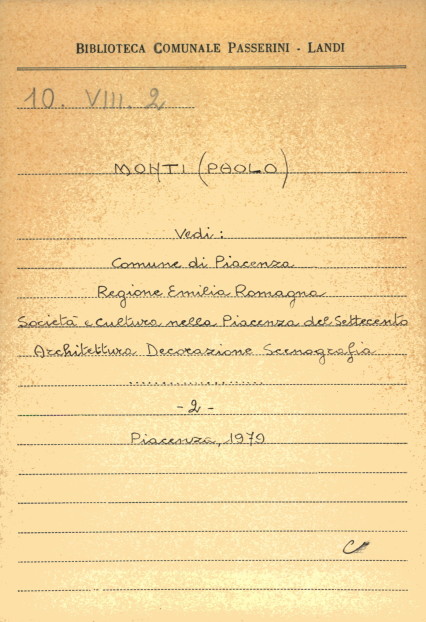 BIBLIOTECA COMUNALE PASSERINI - LANDI
10. VIII. 2
MONTI (PAOLO)
Vedi:
Comune di Piacenza
Regione Emilia Romagna
Società e Cultura nella Piacenza del Settecento
Architettura Decorazione Scenografia
.....................
- 2 -
Piacenza, 1979